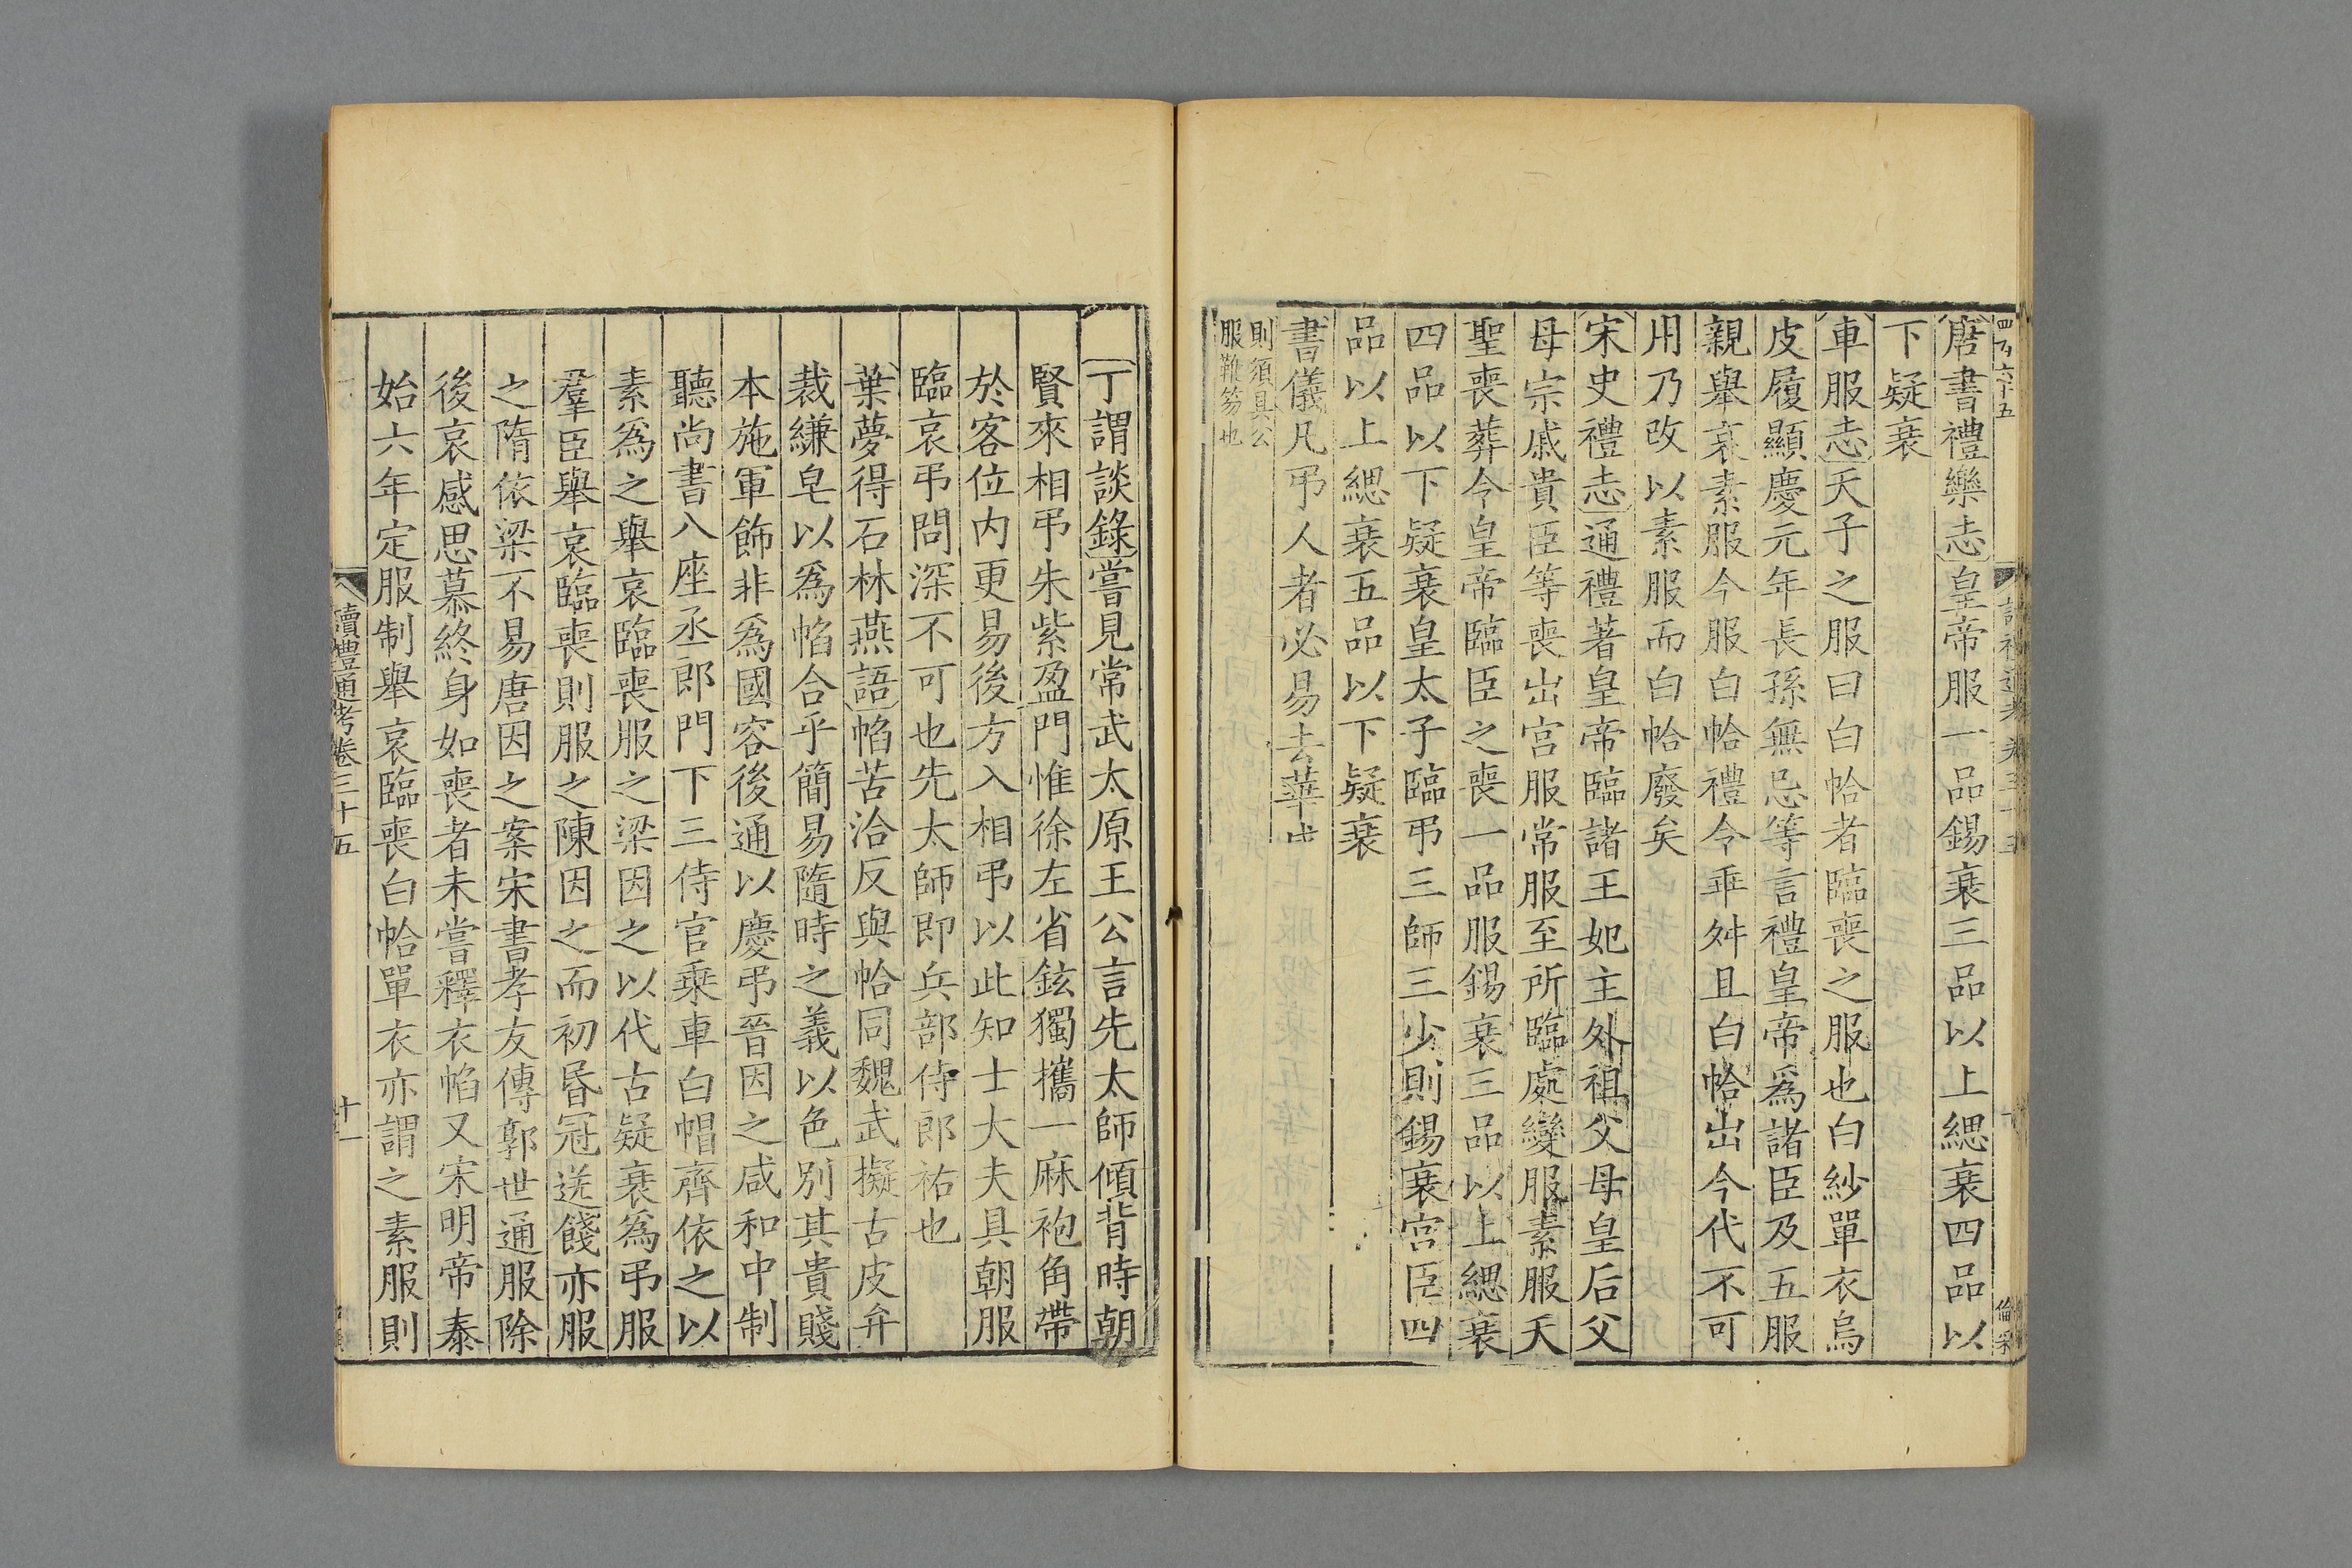 唐書禮樂志皇帝服一品錫衰三品以上緦衰四品以
下疑衰
車服志天子之服曰白帢者臨喪之服也白紗單衣烏
皮履顯慶元年長孫無忌等言禮皇帝爲諸臣及五服
親舉哀素服今服白帢禮令乖舛且白帢出今代不可
用乃改以素服而白帢廢矣
宋史禮志通禮著皇帝臨諸王妃主外祖父母皇后父
母宗戚貴臣等喪出宮服常服至所臨處變服素服天
聖喪葬令皇帝臨臣之喪一品服錫衰三品以上緦衰
四品以下疑衰皇太子臨弔三師三少則錫衰宮臣四
品以上緦衰五品以下疑衰
書儀凡弔人者必易去華
則須具公
服靴笏也
丁謂談錄嘗見常武太原王公言先太師傾背時朝
賢來相弔朱紫盈門惟徐左省鉉獨攜一麻袍角帶
於客位内更易後方入相弔以此知士大夫具朝服
臨哀弔問深不可也先太師即兵部侍郎祐也
葉夢得石林燕語帢苦洽反與帢同魏武擬古皮弁
裁縑皂以爲帢合乎簡易隨時之義以色別其貴賤
本施軍飾非爲國容後通以慶弔晉因之咸和中制
聽尚書八座丞郎門下三侍官乗車白帽齊依之以
素爲之舉哀臨喪服之梁因之以代古疑衰爲弔服
羣臣舉哀臨喪則服之陳因之而初昏冠送餞亦服
之隋依梁不易唐因之案宋書孝友傳郭世通服除
後哀感思慕終身如喪者未嘗釋衣帢又宋明帝泰
始六年定服制舉哀臨喪白帢單衣亦謂之素服則
讀禮通考卷三十五
十一